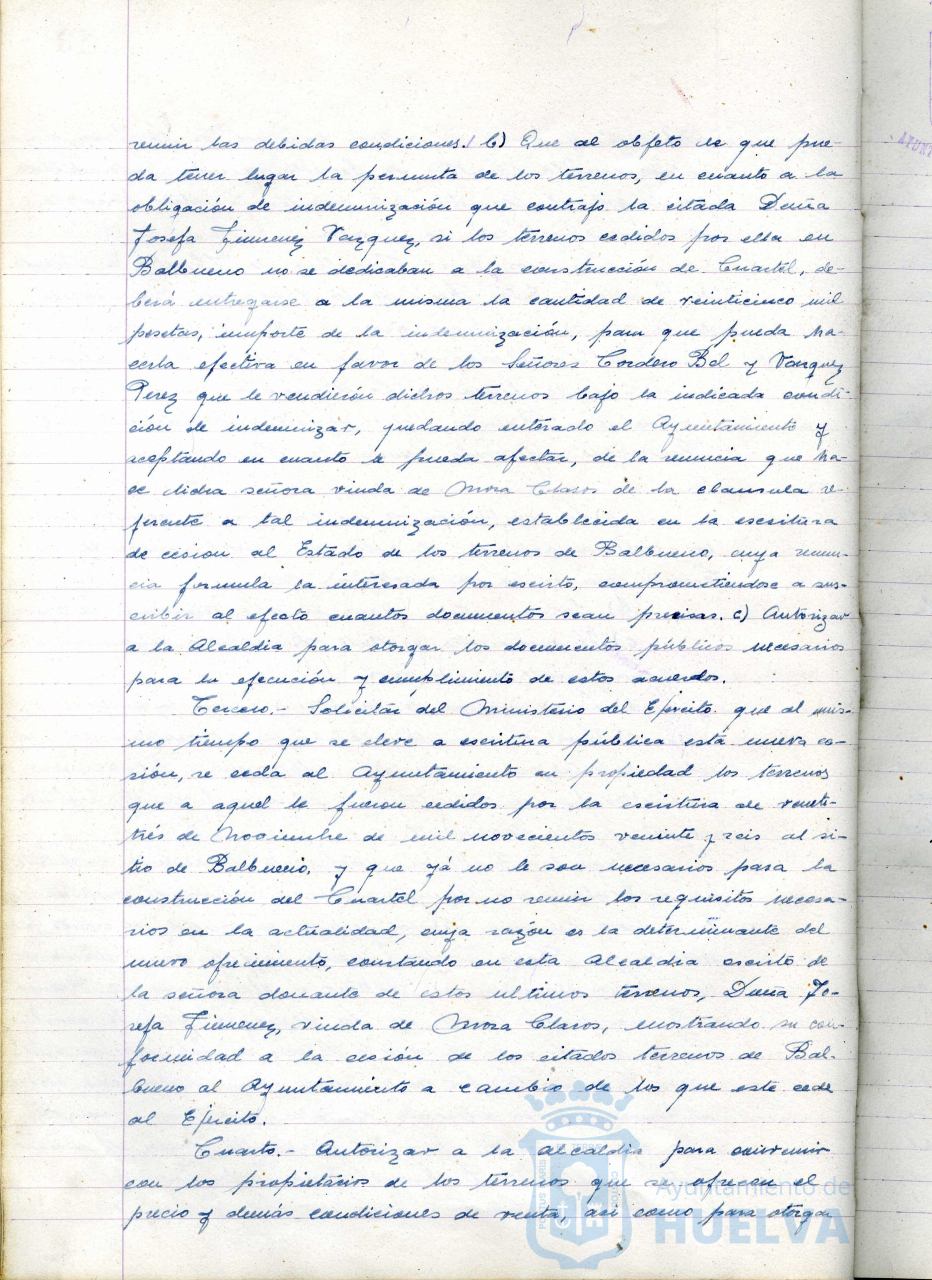 reunir las debidas condiciones. b) Que al objeto de que pue-
da tener lugar la permuta de los terrenos, en cuanto a la
obligación de indemnización que contrajo la citada Doña
Josefa Jimenez Vazquez, si los terrenos cedidos por ella en
Balbueno no se dedicaban a la construcción de Cuartel, de-
berá entregarse a la misma la cantidad de veinticinco mil
pesetas, importe de la indemnización, para que pueda ha-
cerla efectiva en favor de los Señores Cordero Bel y Vazquez
Perez que le vendieron dichos terrenos bajo la indicada condi-
ción de indemnizar, quedando enterado el Ayuntamiento y
aceptando en cuanto le pueda afectar, de la renuncia que ha-
ce dicha señora viuda de Mora Claros de la clausula re-
ferente a tal indemnización, establecida en la escritura
de cesion al Estado de los terrenos de Balbueno, cuya renun-
cia formula la interesada por escrito, comprometiendose a sus-
cribir al efecto cuantos documentos sean precisos. c) Autorizar
a la Alcaldia para otorgar los documentos públicos necesarios
para la ejecución y cumplimiento de estos acuerdos.
Tercero.- Solicitar del Ministerio del Ejercito que al mis-
mo tiempo que se eleve a escritura pública está nueva ce-
sión, se ceda al Ayuntamiento en propiedad los terrenos
que a aquel le fueron cedidos por la escritura de veinti-
trés de Noviembre de mil novecientos veinte y seis al si-
tio de Balbueno, y que yá no le son necesarios para la
construcción del Cuartel por no reunir los requisitos necesa-
rios en la actualidad, cuya razón es la determinante del
nuevo ofrecimiento, constando en esta Alcaldia escrito de
la señora donante de estos ultimos terrenos, Doña Jo-
sefa Jimenez, viuda de Mora Claros, mostrando su con-
formidad a la cesión de los citados terrenos de Bal-
bueno al Ayuntamiento a cambio de los que este cede
al Ejercito.
Cuarto.- Autorizar a la alcaldia para convenir
con los propietarios de los terrenos que se ofrecen el
precio y demás condiciones de venta, asi como para otorgar
Ayuntamiento de
HUELVA